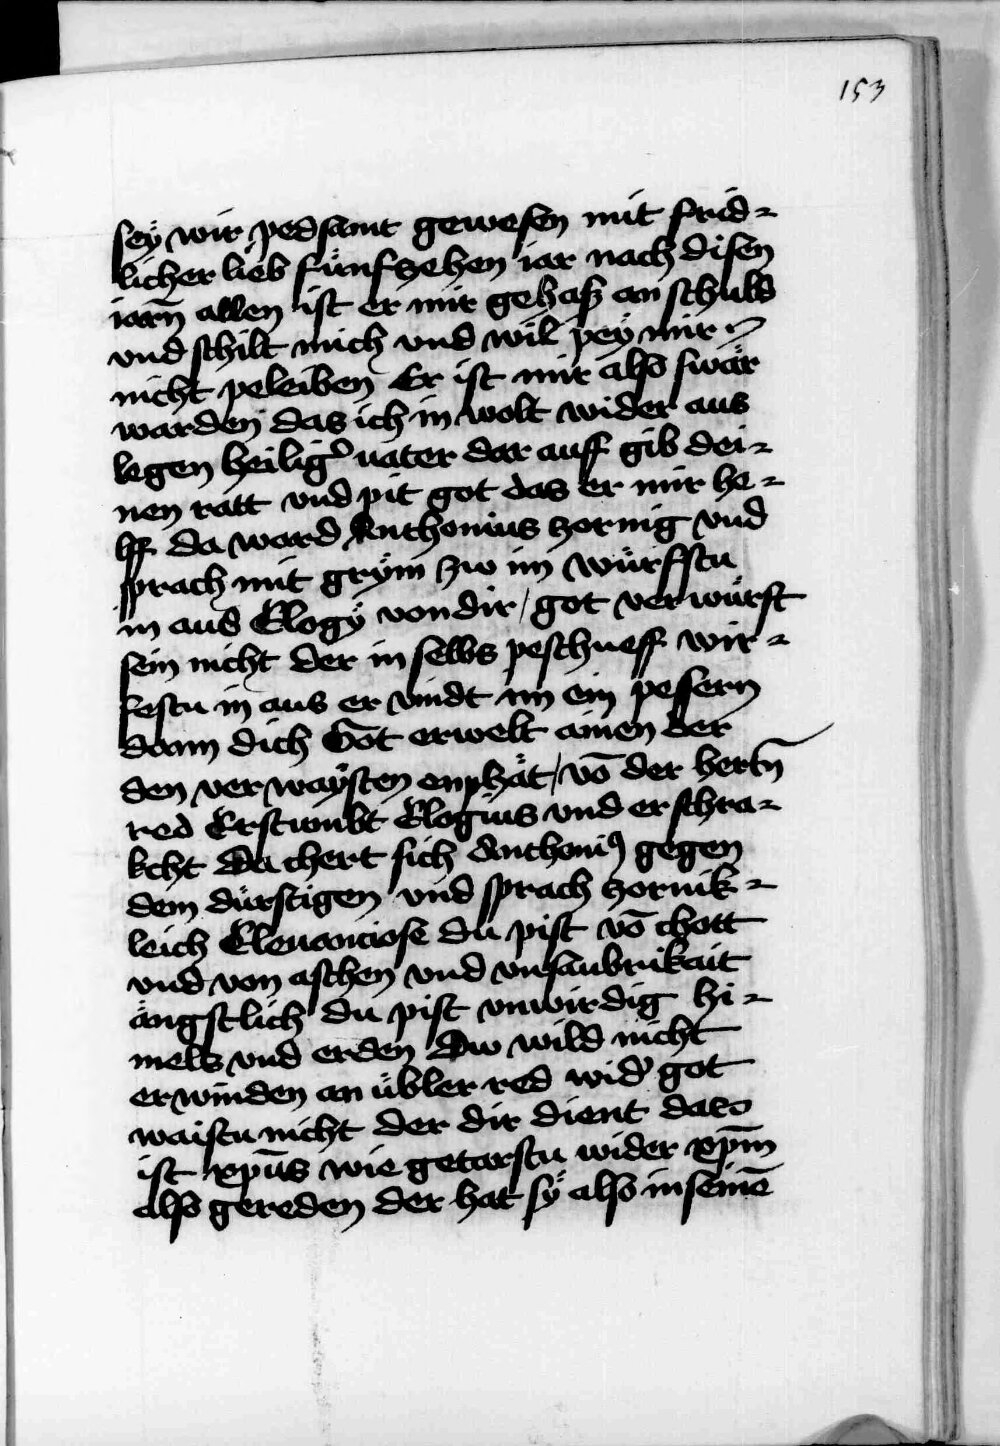 153
seÿ wir pedsamt gewesen mit frid⸗
licher lieb fünfzehen iar nach disen
iarn̄ allen ist er mir gehaß an schuld
vnd schilt mich vnd wil peÿ mir
nicht peleiben Er ist mir also swär
warden das ich in wolt wider aus
legen heilig᾽ uater dar auff gib dei⸗
nen ratt vnd pit got das er mir he⸗
lff da ward Anthonius zornig vnd
sprach mit grÿm zw im würfstu
in aus Elogÿ von dir / got verwürft
sein nicht der in selbs peschueff wir⸗
festu in aus er vindt im ein pessern
dann dich Got erwelt ainen der
den verwaÿsten enphät / vō der hertn̄
red Erstumbt Elogius vnd erschra⸗
kcht Da chert sich Anthoniꝰ gegen
dem dürftigen vnd sprach zornik⸗
leich du pist vō chott
vnd von aschen vnd vnsaubrikait
ängstlich du pist vnwirdig hi⸗
mels vnd erden Dw wild nicht
erwinden an übler red wid᾽ got
waistu nicht der dir dient das
ist xp̄us wie getarstu wider xp̄m
also gereden der hat sÿ also in seinē